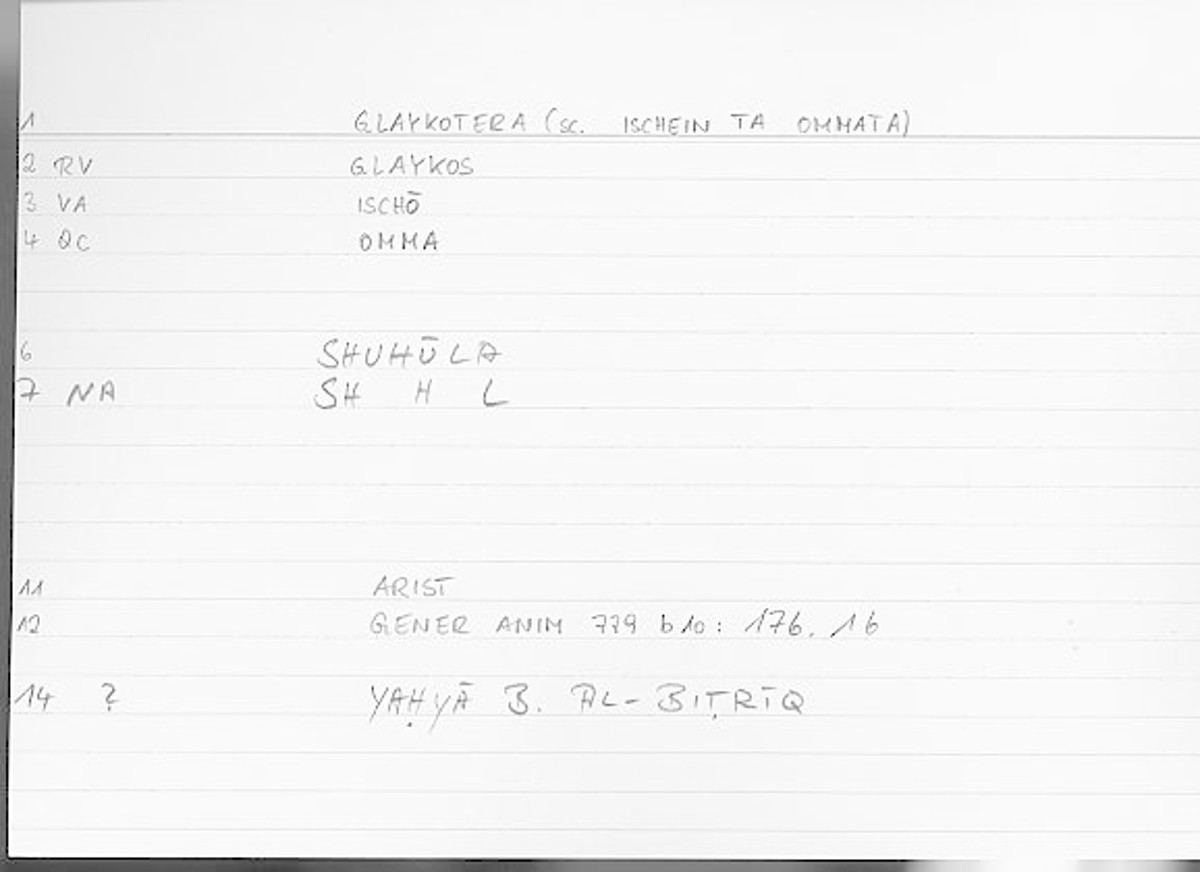 1 GLAYKOTERA (SC. ISCHEIN TA OMMATA)
2 RV GLAYKOS
3 VA ISCHŌ
4 QC OMMA
6 SHUHŪLA
7 NA SH H L
11 ARIST
12 GENER ANIM 779 b10: 176. 16
14 ? YAḤYĀ B. AL-BIṬRĪQ